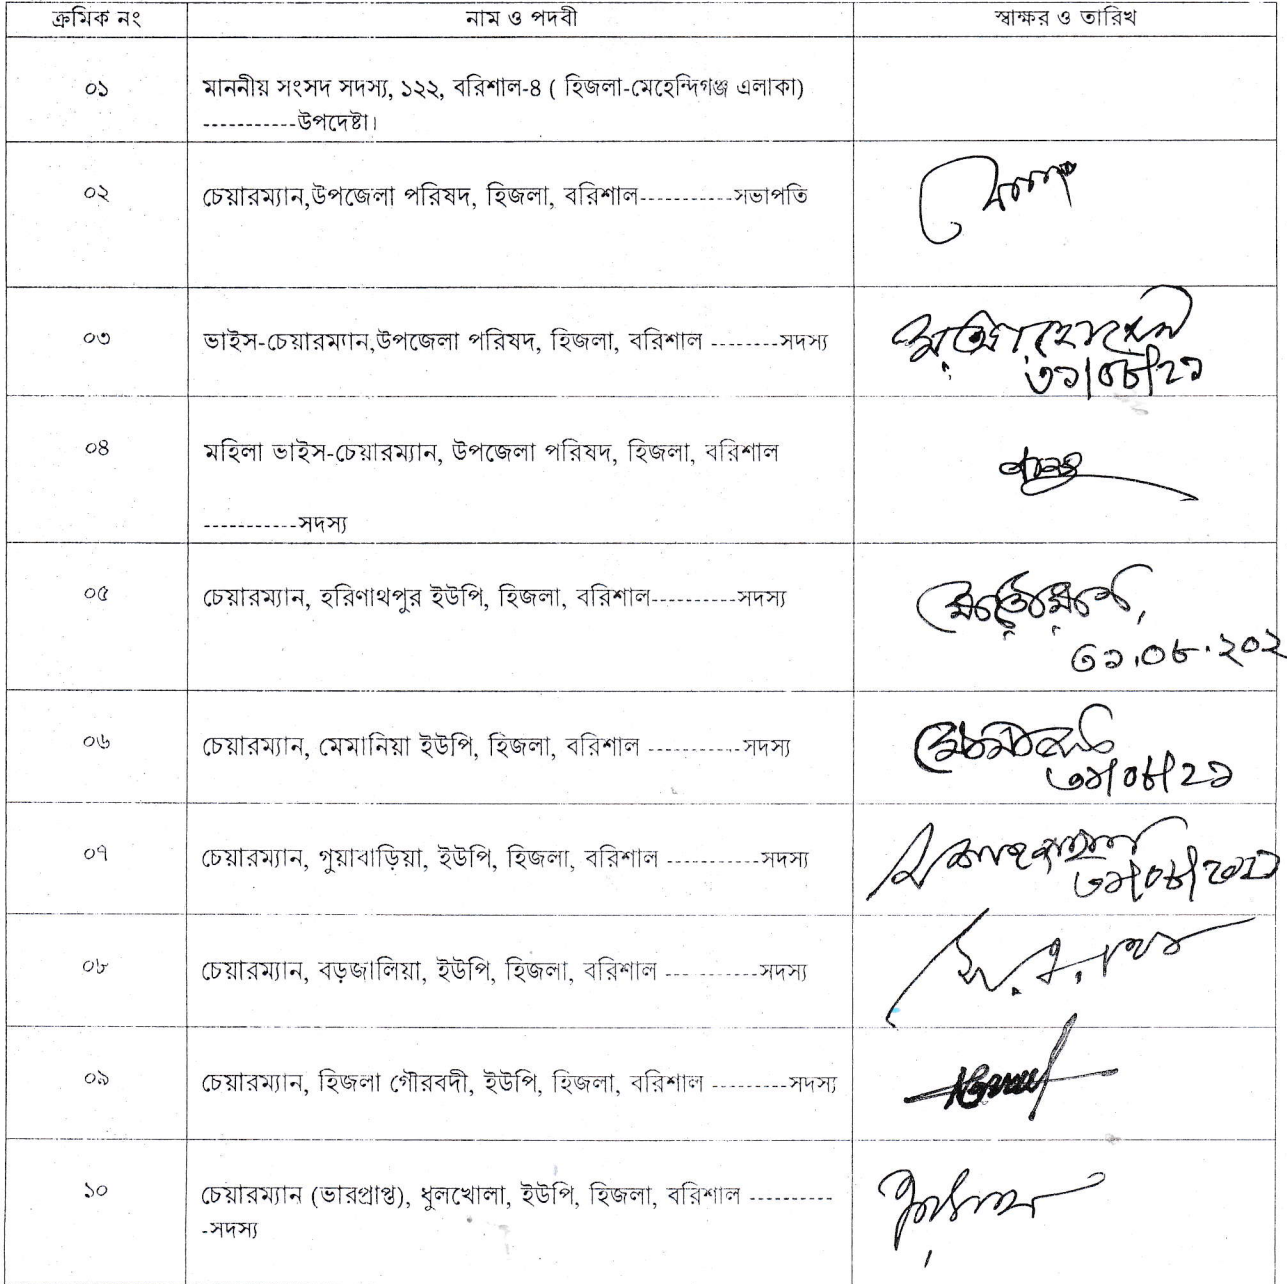 ক্রমিক নং নাম ও পদবী স্বাক্ষর ও তারিখ
০১ মাননীয় সংসদ সদস্য, ১২২, বরিশাল-৪ ( হিজলা-মেহেন্দিগঞ্জ এলাকা)
-----------উপদেষ্টা।
০২ চেয়ারম্যান,উপজেলা পরিষদ, হিজলা, বরিশাল-----------সভাপতি
০৩ ভাইস-চেয়ারম্যান,উপজেলা পরিষদ, হিজলা, বরিশাল --------সদস্য
৩১/০৮/২১
০৪ মহিলা ভাইস-চেয়ারম্যান, উপজেলা পরিষদ, হিজলা, বরিশাল
-----------সদস্য
০৫ চেয়ারম্যান, হরিণাথপুর ইউপি, হিজলা, বরিশাল----------সদস্য
৩১.০৮.২০২
০৬ চেয়ারম্যান, মেমানিয়া ইউপি, হিজলা, বরিশাল -----------সদস্য
৩১/০৮/২১
০৭ চেয়ারম্যান, গুয়াবাড়িয়া, ইউপি, হিজলা, বরিশাল -----------সদস্য
৩১/০৮/২০২১
০৮ চেয়ারম্যান, বড়জালিয়া, ইউপি, হিজলা, বরিশাল --- -------সদস্য
০৯ চেয়ারম্যান, হিজলা গৌরবদী, ইউপি, হিজলা, বরিশাল ---------সদস্য
১০ চেয়ারম্যান (ভারপ্রাপ্ত), ধুলখোলা, ইউপি, হিজলা, বরিশাল ----------
-সদস্য